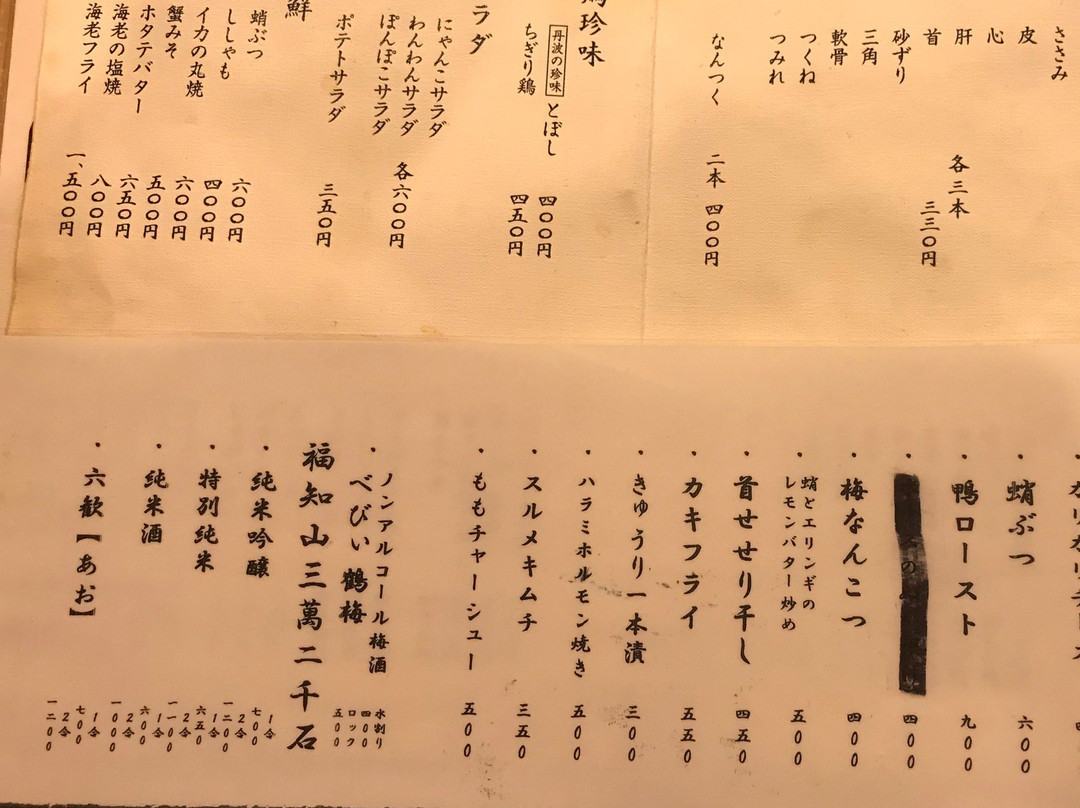 ささみ
皮
心
肝
首
砂ずり
三角
軟骨
つくね
つみれ
各三本 三三〇円
なんつく 二本 四〇〇円
珍味
丹波の珍味 とぼし 四〇〇円
ちぎり鶏 四五〇円
ラダ
にゃんこサラダ
わんわんサラダ
ぽんぽこサラダ
各六〇〇円
ポテトサラダ 三五〇円
鮮
蛸ぶつ 六〇〇円
ししゃも 四〇〇円
イカの丸焼 六〇〇円
蟹みそ 五〇〇円
ホタテバター 六五〇円
海老の塩焼 八〇〇円
海老フライ 一、五〇〇円
・蛸ぶつ 六００
・鴨ロースト 九００
・ 四００
・梅なんこつ 四００
・蛸とエリンギの
レモンバター炒め 五００
・首せせり干し 四五０
・カキフライ 五五０
・きゅうり一本漬 三００
・ハラミホルモン焼き 五００
・スルメキムチ 三五０
・ももチャーシュー 五００
・ノンアルコール梅酒
べびぃ鶴梅
水割り 四００
ロック 五００
福知山三萬二千石
・純米吟醸 1合 七００ 2合 一二００
・特別純米 1合 六五０ 2合 一一００
・純米酒 1合 六００ 2合 一０００
・六歓【あお】 1合 七００ 2合 一二００